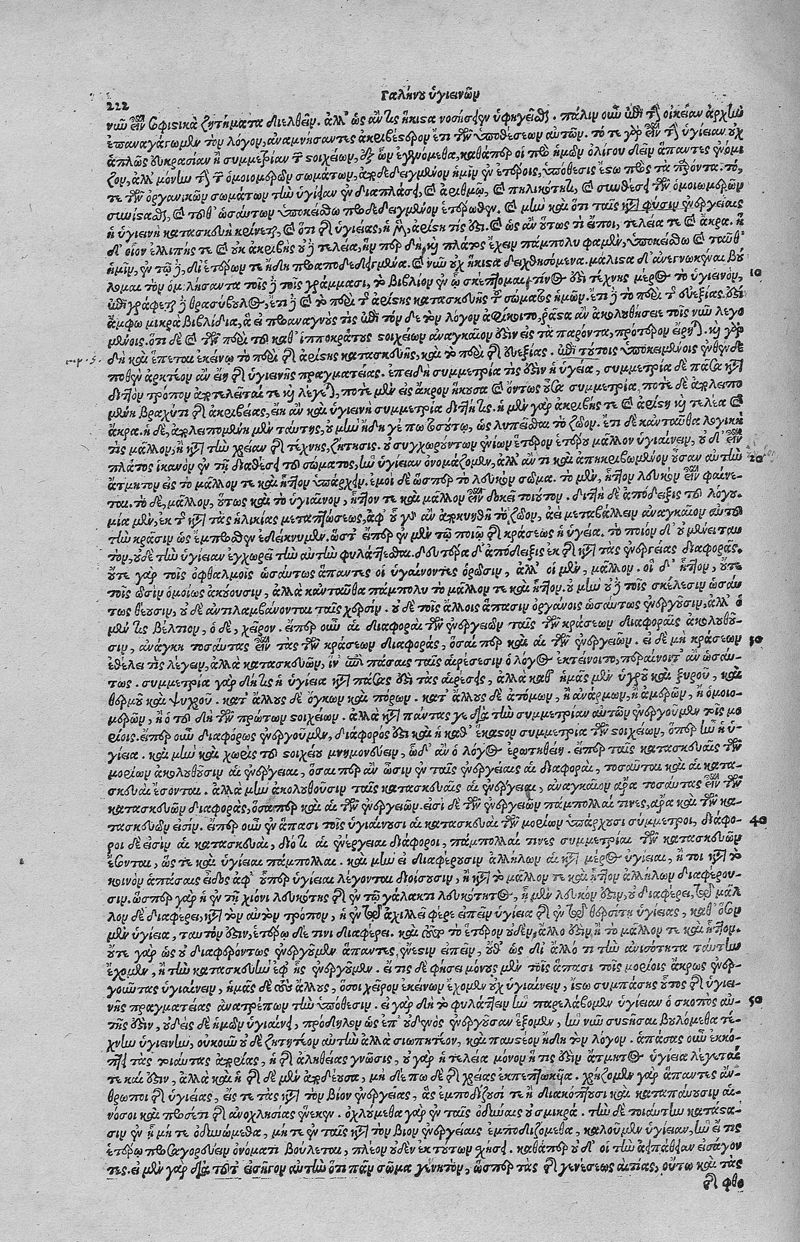 222
Γαληνου ὑγιεινῶν
νῦν εἰς σοφιστικὰ ζητήματα διελθεῖν. ἀλλ' ὡς ἄν τις ἥκιστα νοσήσειεν ὑφηγεῖσθαι. πάλιν οὖν ἐπὶ τὴν οἰκείαν ἀρχὴν
ἐπαναγάγωμεν τὸν λόγον, ἀναμνήσαντες ἀκριβέστερον ἔτι τῶν ὑποθέσεων αὐτῶν. τό τε γὰρ εἶναι τὴν ὑγίειαν οὐχ
ἁπλῶς εὐκρασίαν ἢ συμμετρίαν τῶν στοιχείων, ἐξ ὧν ἐγενόμεθα, καθάπερ οἱ πρὸ ἡμῶν ὀλίγου δεῖν ἅπαντες ἐνόμι
ζον, ἀλλὰ μόνην τὴν τῶν ὁμοιομερῶν σωμάτων, ἀποδεδειγμένον ἡμῖν ἐν ἑτέροις, ὑπόθεσις ἔστω πρὸς τὰ παρόντα. τό,
τε τῶν ὀργανικῶν σωμάτων τὴν ὑγίειαν ἐν διαπλάσει, καὶ ἀριθμῷ, καὶ πηλικότητι, καὶ συνθέσει τῶν ὁμοιομερῶν
συνίστασθαι, καὶ τοῦθ' ὡσαύτως ὑποκείσθω προδεδειγμένον ἑτέρωθεν. καὶ μὲν καὶ ὅτι ταῖς κατὰ φύσιν ἐνεργείαις
ἡ ὑγιεινὴ κατασκευὴ κρίνεται, καὶ ὅτι τῆς ὑγιείας, ἡ μὲν, ἀρίστη τίς ἐστι. καὶ ὡς ἂν οὕτως τις εἴποι, τελεία τε καὶ ἄκρα. ἡ
δ' οἷον ἐλλιπής τε καὶ οὐκ ἀκριβὴς οὐδὲ τελεία, ἥν περ δὴ, καὶ πλάτος ἔχειν πάμπολυ φαμὲν, ὑποκείσθω καὶ ταῦθ'
ἡμῖν, ἐν τῷ δι' ἑτέρων τε ἤδη προαποδεδειγμένα. καὶ νῦν οὐχ ἥκιστα δειχθησόμενα. μάλιστα δ' ἀνεγνωκέναι βού
λομαι τὸν ὁμιλήσαντα τοῖς γράμμασι, τὸ βιβλίον ἐν ᾧ σκέπτομαι, τίνος ἐστὶ τέχνης μέρος τὸ ὑγιεινόν, 10
ἐπιγράφεται θρασύβουλος, ἔτι καὶ τὸ περὶ τῆς ἀρίστης κατασκευῆς τοῦ σώματος ἡμῶν. ἔτι τὸ περὶ τῆς εὐεξίας. ἐστὶ
ἄμφω μικρὰ βιβλίδια, ἃ εἰ προαναγνούς τις ἐπὶ τόνδε τὸν λόγον ἀφίκοιτο, ῥᾷστα ἂν ἀκολουθήσειε τοῖς νῦν λεγο
μένοις. ὅτι δὲ καὶ τῶν περὶ τῶν καθ' ἱπποκράτους στοιχείων ἀναγκαῖον ἐστιν εἰς τὰ παρόντα, πρότερον εἴρηται. καὶ γὰρ
δὴ καὶ ἕπεται ἐκείνῳ τὸ περὶ τῆς ἀρίστης κατασκευῆς, καὶ τὸ περὶ τῆς εὐεξίας. ἐπὶ τούτοις ὑποκειμένοις ἐνθένδε
ποθὲν ἀρκτέον ἂν εἴη τῆς ὑγιεινῆς πραγματείας. ἐπειδὴ συμμετρία τίς ἐστιν ἡ ὑγίεια, συμμετρία δὲ πᾶσα κατὰ
διττὸν τρόπον ἀποτελεῖταί τε καὶ λέγεται, ποτὲ μὲν εἰς ἄκρον ἥκουσα καὶ ὄντως οὖσα συμμετρία. ποτὲ δὲ ἀπολειπο
μένη βραχύ τι τῆς ἀκριβείας, εἴη ἂν καὶ ὑγιεινὴ συμμετρία διττή τις. ἡ μὲν γὰρ ἀκριβής τε καὶ ἀρίστη καὶ τελεία καὶ
ἄκρα. ἡ δὲ, ἀπολειπομένη μὲν ταύτης, οὐ μὴν ἤδη γέ πω τοσοῦτον, ὡς λυπεῖσθαι τὸ ζῶον. ἔτι δὲ κἀνταῦθα λογική
τις μᾶλλον, ἢ κατὰ τὴν χρείαν τῆς τέχνης, ζήτησις. οὐ συγχωρούντων ἐνίων ἕτερον ἑτέρου μᾶλλον ὑγιαίνειν, οὐδ' εἶναι
πλάτος ἱκανὸν ἐν τῇ διαθέσει τοῦ σώματος, ἣν ὑγίειαν ὀνομάζομεν, ἀλλ' ἄν τι καὶ ἀπηκριβωμένην οὖσαν αὐτὴν 20
ἄτμητον εἰς τὸ μᾶλλόν τε καὶ ἧττον ὑπάρχειν. ἐμοὶ δὲ ὥσπερ τὸ λευκὸν σῶμα. τὸ μὲν, ἧττον λευκὸν εἶναι φαίνε-
ται. τὸ δὲ, μᾶλλον, οὕτως καὶ τὸ ὑγιαῖνον, ἧττόν τε καὶ μᾶλλον εἶναι δοκεῖ τοιοῦτον. διττὴ δὲ ἀπόδειξις τοῦ λόγου.
μία μὲν, ἐκ τῆς κατὰ τὰς ἡλικίας μεταπτώσεως, ἀφ' οὗ γ' ἂν ἀποκυηθῇ τὸ ζῶον, ἀεὶ μεταβάλλειν ἀναγκαῖον αὐτοῦ
τὴν κρᾶσιν ὡς ἔμπροσθεν ἐδείκνυμεν. ὥστ' εἴπερ ἐν μὲν τῷ ποιῷ τῆς κράσεως ἡ ὑγίεια. τὸ ποιὸν δ' οὐ μένει ταυ
τὸν, οὐδὲ τὴν ὑγίειαν ἐγχωρεῖ τὴν αὐτὴν φυλάττεσθαι. δευτέρα δ' ἀπόδειξις ἐκ τῆς κατὰ τὰς ἐνεργείας διαφορᾶς.
οὔτε γὰρ τοῖς ὀφθαλμοῖς ὡσαύτως ἅπαντες οἱ ὑγιαίνοντες ὁρῶσιν, ἀλλ' οἱ μὲν, μᾶλλον. οἱ δ' ἧττον, οὔτε
τοῖς ὠσὶν ὁμοίως ἀκούουσιν, ἀλλὰ κἀνταῦθα πάμπολυ τὸ μᾶλλόν τε καὶ ἧττον. οὐ μὴν οὐδὲ τοῖς σκέλεσιν ὡσαύ
τως θέουσιν, οὐδὲ ἀντιλαμβάνονται ταῖς χερσίν. οὐδὲ τοῖς ἄλλοις ἅπασιν ὀργάνοις ὡσαύτως ἐνεργοῦσιν, ἀλλ' ὁ
μέν τις βέλτιον, ὁ δὲ, χεῖρον. εἴπερ οὖν αἱ διαφοραὶ τῶν ἐνεργειῶν ταῖς τῶν κράσεων διαφοραῖς ἀκολουθοῦ-
σιν, ἀνάγκη τοσαύτας εἶναι τὰς τῶν κράσεων διαφοράς, ὅσαιπερ καὶ αἱ τῶν ἐνεργειῶν. εἰ δὲ μὴ κράσεων 30
ἐθέλει τὶς λέγειν, ἀλλὰ κατασκευῶν, ἵν' ἐπὶ πάσαις ταῖς αἱρέσεσιν ὁ λόγος ἐκτείνοιτο, περαίνοιτ' ἂν ὡσαύ-
τως. συμμετρία γὰρ δή τις ἡ ὑγίεια κατὰ πάσας ἐστὶ τὰς αἱρέσεις, ἀλλὰ καθ' ἡμᾶς μὲν ὑγροῦ καὶ ξηροῦ, καὶ
θερμοῦ καὶ ψυχροῦ. κατ' ἄλλους δὲ ὄγκων καὶ πόρων. κατ' ἄλλους δὲ ἀτόμων, ἢ ἀνάρμων, ἢ ἀμερῶν, ἢ ὁμοιο-
μερῶν, ἢ ὅτου δὴ τῶν πρώτων στοιχείων. ἀλλὰ κατὰ πάντας γε διὰ τὴν συμμετρίαν αὐτῶν ἐνεργοῦμεν τοῖς μο
ρίοις. εἴπερ οὖν διαφόρως ἐνεργοῦμεν, διάφορός ἐστι καὶ ἡ καθ' ἕκαστον συμμετρία τῶν στοιχείων, ὅπερ ἦν ἡ ὑ-
γίεια. καὶ μὴν καὶ χωρὶς τοῦ στοιχείου μνημονεύειν, ὧδ' ἂν ὁ λόγος ἐρωτηθείη. εἴπερ ταῖς κατασκευαῖς τῶν
μορίων ἀκολουθοῦσιν αἱ ἐνέργειαι, ὅσαιπερ ἂν ὦσιν ἐν ταῖς ἐνεργείαις αἱ διαφοραὶ, τοσαῦται καὶ αἱ κατα-
σκευαὶ ἔσονται. ἀλλὰ μὴν ἀκολουθοῦσιν ταῖς κατασκευαῖς αἱ ἐνέργειαι, ἀναγκαῖον ἄρα τοσαύτας εἶναι τῶν
κατασκευῶν διαφοράς, ὅσαιπερ καὶ αἱ τῶν ἐνεργειῶν. εἰσὶ δὲ τῶν ἐνεργειῶν πάμπολλαί τινες, ἄρα καὶ τῶν κα-
τασκευῶν εἰσίν. εἴπερ οὖν ἐν ἅπασι τοῖς ὑγιαίνουσι αἱ κατασκευαὶ τῶν μορίων ὑπάρχουσι σύμμετροι, διάφο- 40
ροι δέ εἰσιν αἱ κατασκευαὶ, διότι καὶ αἱ ἐνέργειαι διάφοροι, πάμπολλαί τινες συμμετρίαι τῶν κατασκευῶν
ἔσονται, ὥς τε καὶ ὑγίειαι πάμπολλαι. καὶ μὴν εἰ διαφέρουσιν ἀλλήλων αἱ κατὰ μέρος ὑγίειαι, ἤτοι κατὰ τὸ
κοινὸν ἁπάσαις εἶδος ἀφ' οὗπερ ὑγίειαι λέγονται διοίσουσιν, ἢ κατὰ τὸ μᾶλλόν τε καὶ ἧττον ἀλλήλων διαφέρου-
σιν. ὥσπερ γὰρ ἡ ἐν τῇ χιόνι λευκότης τῆς ἐν τῷ γάλακτι λευκότητος, ᾗ μὲν λευκόν ἐστιν, οὐ διαφέρει, τῷ μᾶλ
λον δὲ διαφέρει, κατὰ τὸν αὐτὸν τρόπον, ἡ ἐν τῷ ἀχιλλεῖ φέρε εἰπεῖν ὑγίεια τῆς ἐν τῷ θερσίτῃ ὑγιείας, καθ' ὅσον
μὲν ὑγίεια, ταυτόν ἐστιν, ἑτέρῳ δέ τινι διαφέρει. καὶ τοῦτο τὸ ἕτερον οὐδὲν ἄλλο ἐστὶν, ἢ τὸ μᾶλλόν τε καὶ ἧττον.
οὔτε γὰρ ὡς οὐ διαφερόντως ἐνεργοῦμεν ἅπαντες, ἔνεστιν εἰπεῖν, οὔθ' ὡς δι' ἄλλό τι τὴν ἀνισότητα ταύτην
ἔχομεν, ἢ τὴν κατασκευὴν ἐφ' ἧς ἐνεργοῦμεν. εἴ τις δὲ φήσει μόνους μὲν τοὺς ἅπασι τοῖς μορίοις ἄκρως ἐνερ-
γοῦντας ὑγιαίνειν, ἡμᾶς δὲ τοὺς ἄλλους, ὅσοι χεῖρον ἐκείνων ἔχομεν οὐχ ὑγιαίνειν, ἴστω συμπάσης οὗτος τῆς ὑγιει-
νῆς πραγματείας ἀνατρέπων τὴν ὑπόθεσιν. εἰ γὰρ δὴ τὸ φυλάττειν ἣν παρελάβομεν ὑγίειαν ὁ σκοπὸς αὐ- 50
τῆς ἐστιν, οὐδεὶς δὲ ἡμῶν ὑγιαίνει, πρόδηλον ὡς ἐπ' οὐδενὸς ἐνεργοῦσαν ἕξομεν, ἣν νῦν συστῆσαι βουλόμεθα τέ-
χνην ὑγιεινὴν, οὐκοῦν οὐδὲ ζητητέον αὐτὴν ἀλλὰ σιωπητέον, καὶ παυστέον ἤδη τὸν λόγον. ἁπάσας οὖν ἐκκό-
πτει τὰς τοιαύτας ἀπορίας, ἡ τῆς ἀληθείας γνῶσις, οὐ γὰρ ἡ τελεία μόνον ἥτις ἐστὶν ἄτμητος ὑγίεια λέγεταί
τε καὶ ἔστιν, ἀλλὰ καὶ ἡ τῆσδε μὲν ἀποδέουσα, μηδέπω δὲ τῆς χρείας ἐκπεπτωκυῖα. χρῄζομεν γὰρ ἅπαντες ἄν-
θρωποι τῆς ὑγιείας, εἴς τε τὰς κατὰ τὸν βίον ἐνεργείας, ἃς ἐμποδίζουσί τε ἢ διακόπτουσι καὶ καταπαύουσιν αἱ
νόσοι καὶ προσέτι τῆς ἀνοχλησίας ἕνεκεν. ὀχλούμεθα γὰρ ἐν ταῖς ὀδύναις οὐ σμικρά. τὴν δὲ τοιαύτην κατάστα-
σιν ἐν ᾗ μήτε ὀδυνώμεθα, μήτε ἐν ταῖς κατὰ τὸν βίον ἐνεργείαις ἐμποδιζόμεθα, καλοῦμεν ὑγίειαν, ἣν εἴ τις
ἑτέρῳ προσαγορεύειν ὀνόματι βούλεται, πλέον οὐδὲν ἐκ τούτων χήσει. καθάπερ οὐδ' οἱ τὴν ἀειπάθειαν εἰσάγον
τες. εἰ μὲν γὰρ διὰ τοῦτ' εἰσῆγον αὐτὴν ὅτι πᾶν σῶμα γεννητὸν, ὥσπερ τὰς τῆς γενέσεως αἰτίας, οὕτω καὶ τὰς
τῆς φθο